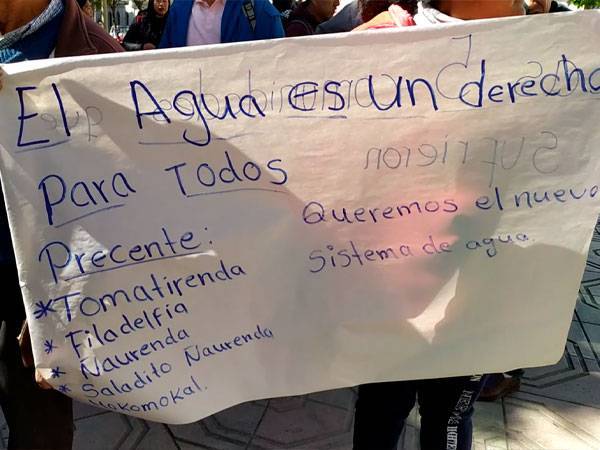 El Agua es un derecho
Para Todos
Precente:
* Tomatirenda
* Filadelfia
* Ñaurenda
* Saladito Ñaurenda
Queremos el nuevo
sistema de agua.
Sufrieron